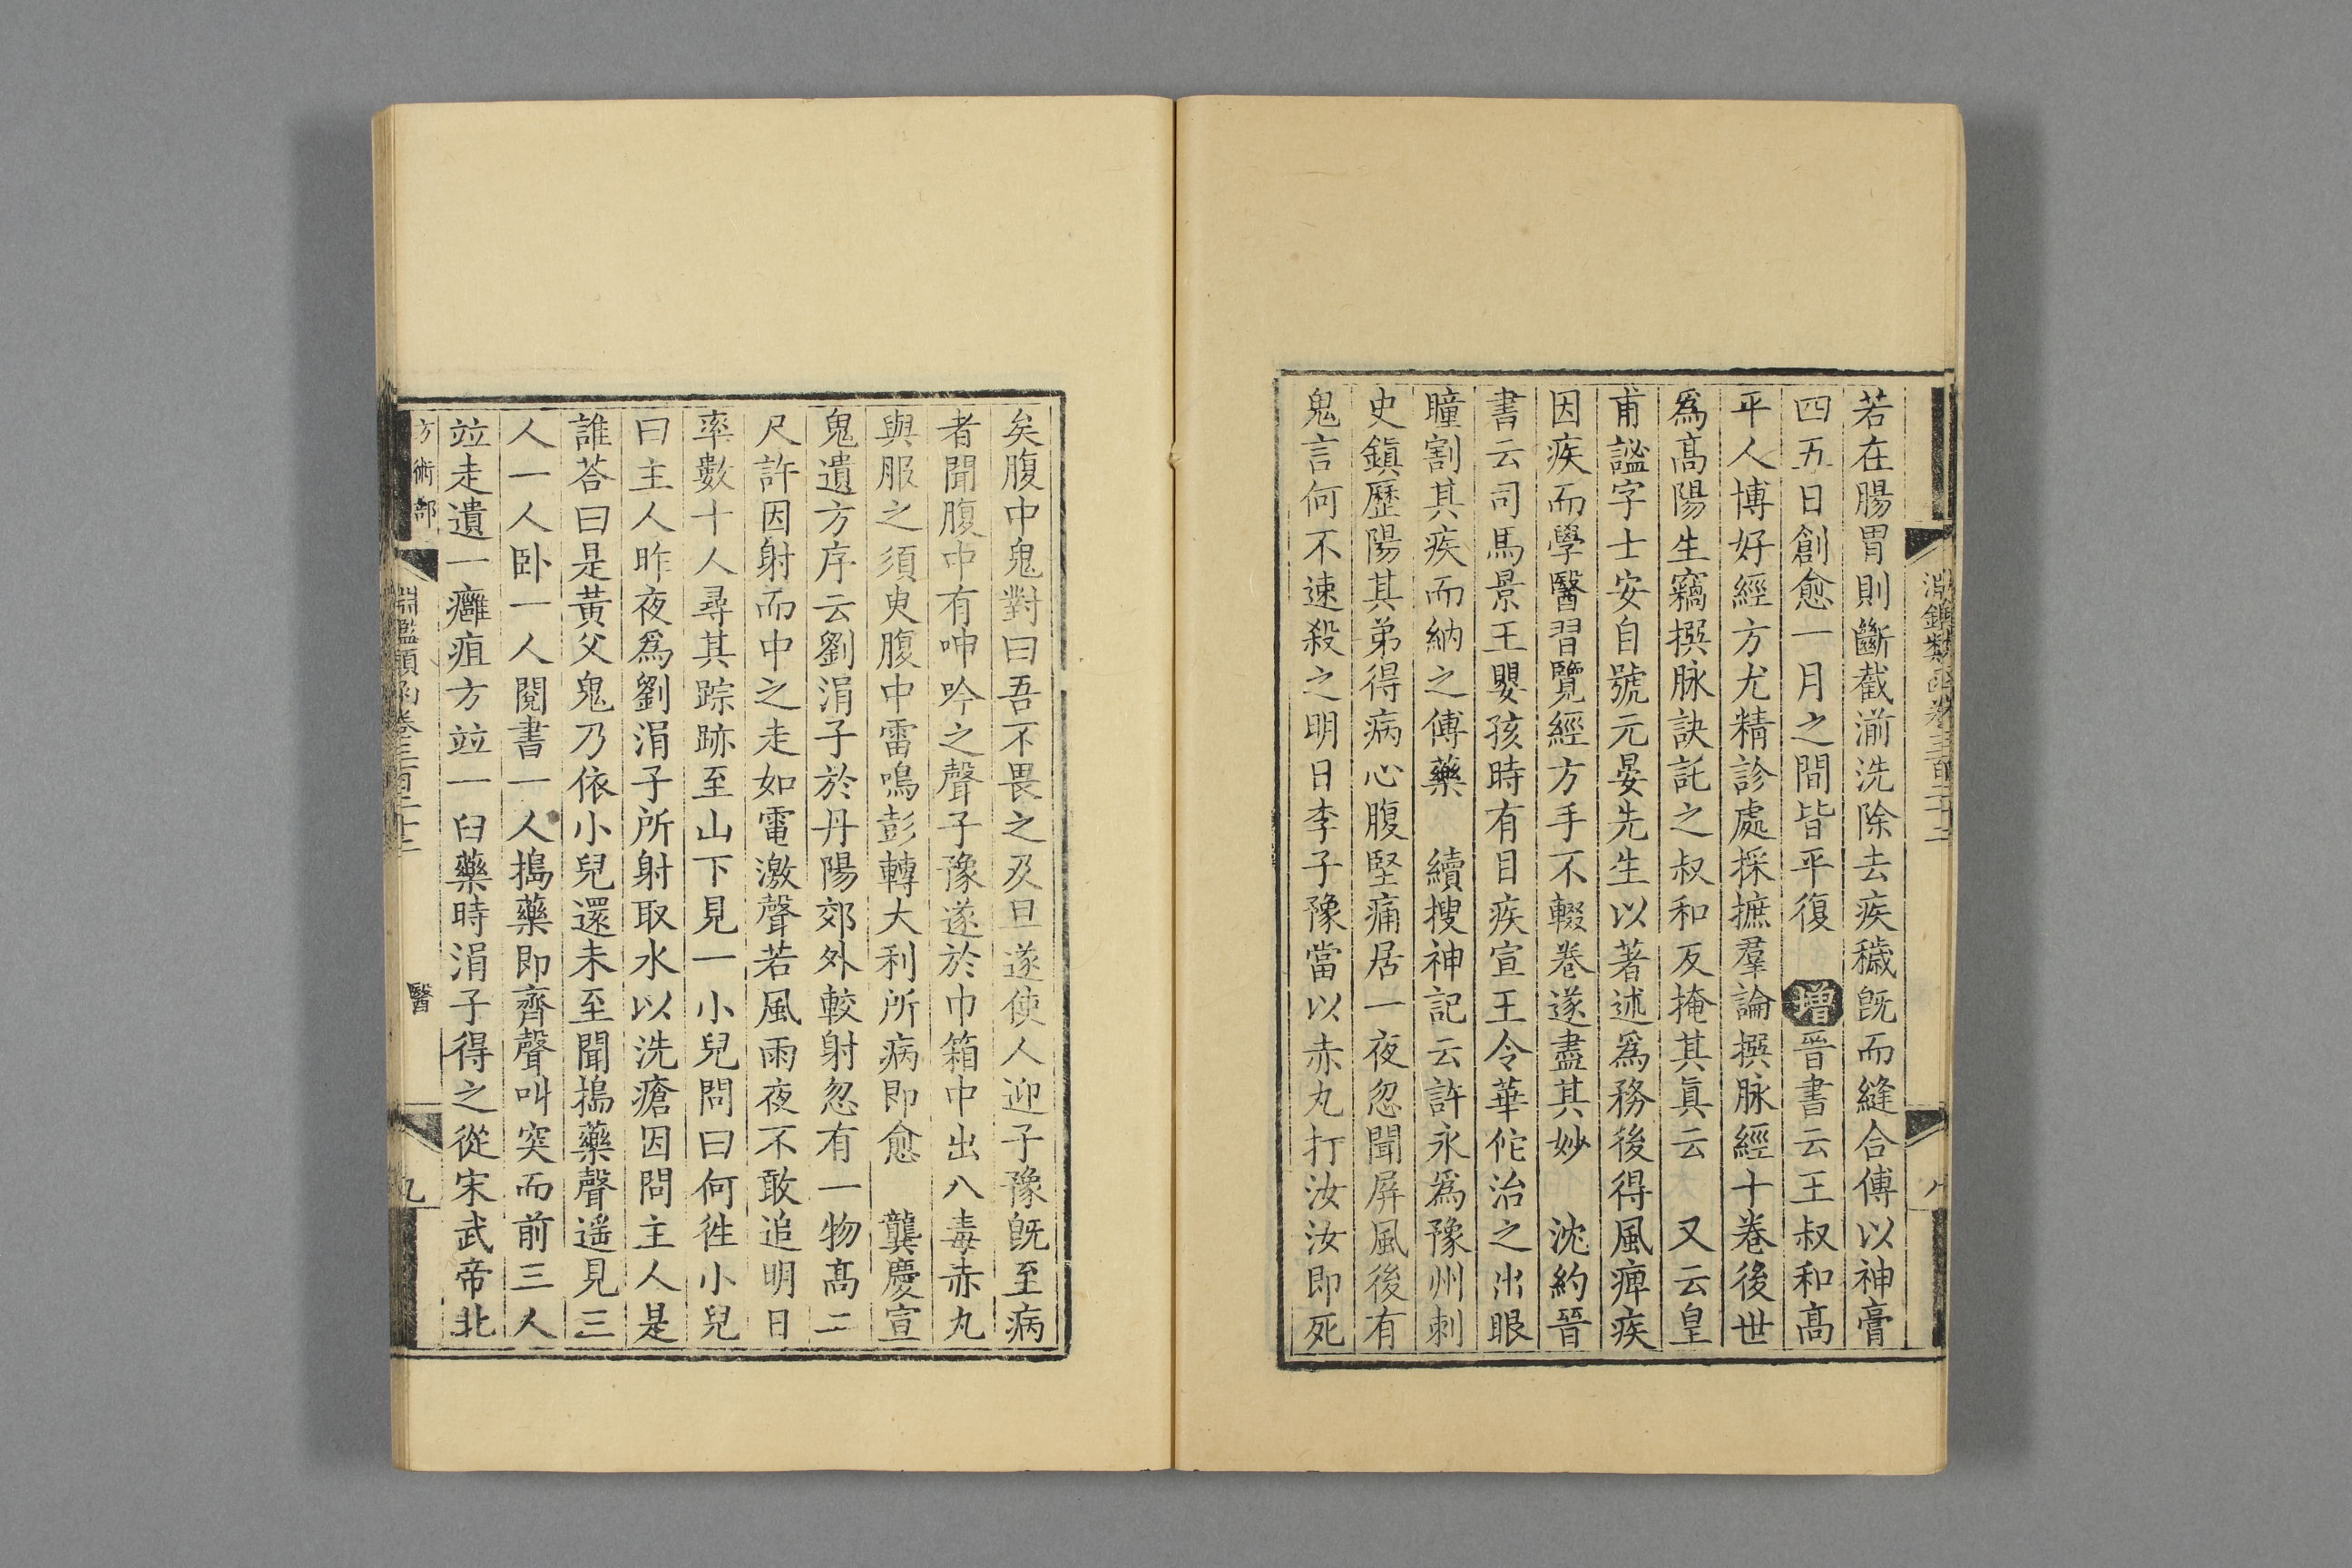 淵鑑類函卷三百二十二
八
若在腸胃則斷截湔洗除去疾穢旣而縫合傅以神膏
四五日創愈一月之間皆平復　增晉書云王叔和髙
平人博好經方尤精診處採摭羣論撰脉經十卷後世
爲髙陽生竊撰脉訣託之叔和反掩其眞云　又云皇
甫謐字士安自號元晏先生以著述爲務後得風痺疾
因疾而學醫習覽經方手不輟卷遂盡其妙　沈約晉
書云司馬景王嬰孩時有目疾宣王令華佗治之出眼
瞳割其疾而納之傅藥　續搜神記云許永爲豫州刺
史鎭歷陽其弟得病心腹堅痛居一夜忽聞屏風後有
鬼言何不速殺之明日李子豫當以赤丸打汝汝即死
矣腹中鬼對曰吾不畏之及旦遂使人迎子豫旣至病
者聞腹中有呻吟之聲子豫遂於巾箱中出八毒赤丸
與服之須臾腹中雷鳴彭轉大利所病即愈　龔慶宣
鬼遺方序云劉涓子於丹陽郊外較射忽有一物髙二
尺許因射而中之走如電激聲若風雨夜不敢追明日
率數十人尋其踪跡至山下見一小兒問曰何徃小兒
曰主人昨夜爲劉涓子所射取水以洗瘡因問主人是
誰荅曰是黃父鬼乃依小兒還未至聞搗藥聲遥見三
人一人臥一人閱書一人搗藥即齊聲叫突而前三人
竝走遺一癰疽方竝一臼藥時涓子得之從宋武帝北
方術部
淵鑑類函卷三百二十二
醫
九